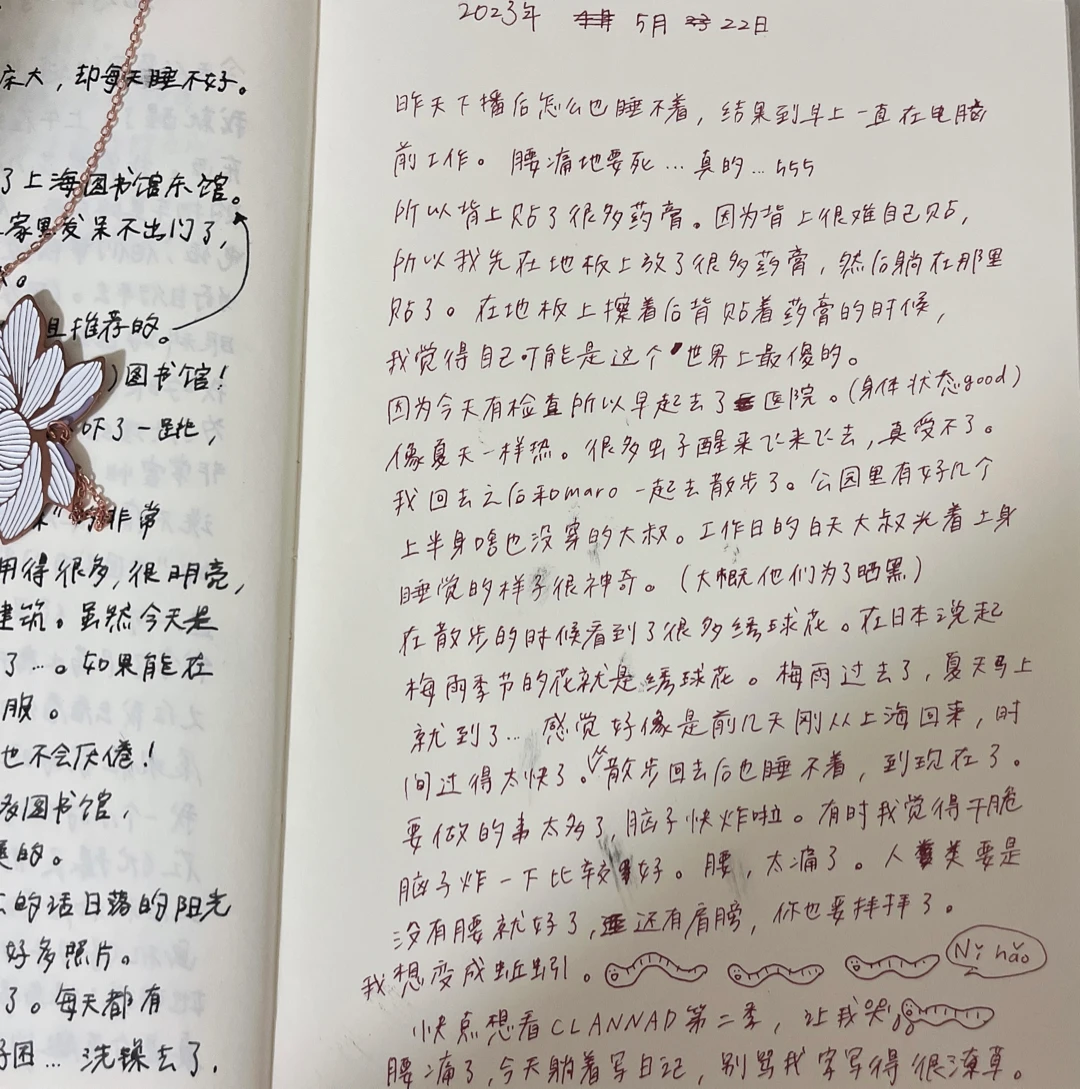 床大，却每天睡不好。
了上海图书馆东馆。
家里发呆不出门了，
且推荐的。
图书馆！
吓了一跳，
非常
用得很多，很明亮，
建筑。虽然今天是
了…。如果能在
服。
也不会厌倦！
图书馆，
的。
的话日落的阳光
好多照片。
了。每天都有
好困…洗澡去了.
2023年 5月 22日
昨天下播后怎么也睡不着，结果到早上一直在电脑
前工作。腰痛地要死…真的…555
所以背上贴了很多药膏。因为背上很难自己贴，
所以我先在地板上放了很多药膏，然后躺在那里
贴了。在地板上擦着后背贴着药膏的时候，
我觉得自己可能是这个世界上最傻的。
因为今天有检查所以早起去了医院。(身体状态good)
像夏天一样热。很多虫子醒来飞来飞去，真受不了。
我回去之后和maro一起去散步了。公园里有好几个
上半身啥也没穿的大叔。工作日的白天大叔光着上身
睡觉的样子很神奇。(大概他们为了晒黑)
在散步的时候看到了很多绣球花。在日本说起
梅雨季节的花就是绣球花。梅雨过去了，夏天马上
就到了…感觉好像是前几天刚从上海回来，时
间过得太快了。散步回去后也睡不着，到现在了。
要做的事太多了，脑子快炸啦。有时我觉得干脆
脑子炸一下比较好。腰，太痛了。人类要是
没有腰就好了，还有肩膀，你也要拜拜了。
我想变成蚯蚓。 Nǐ hǎo
快点想看CLANNAD第二季，让我哭
腰痛了，今天躺着写日记，别骂我字写得很潦草。